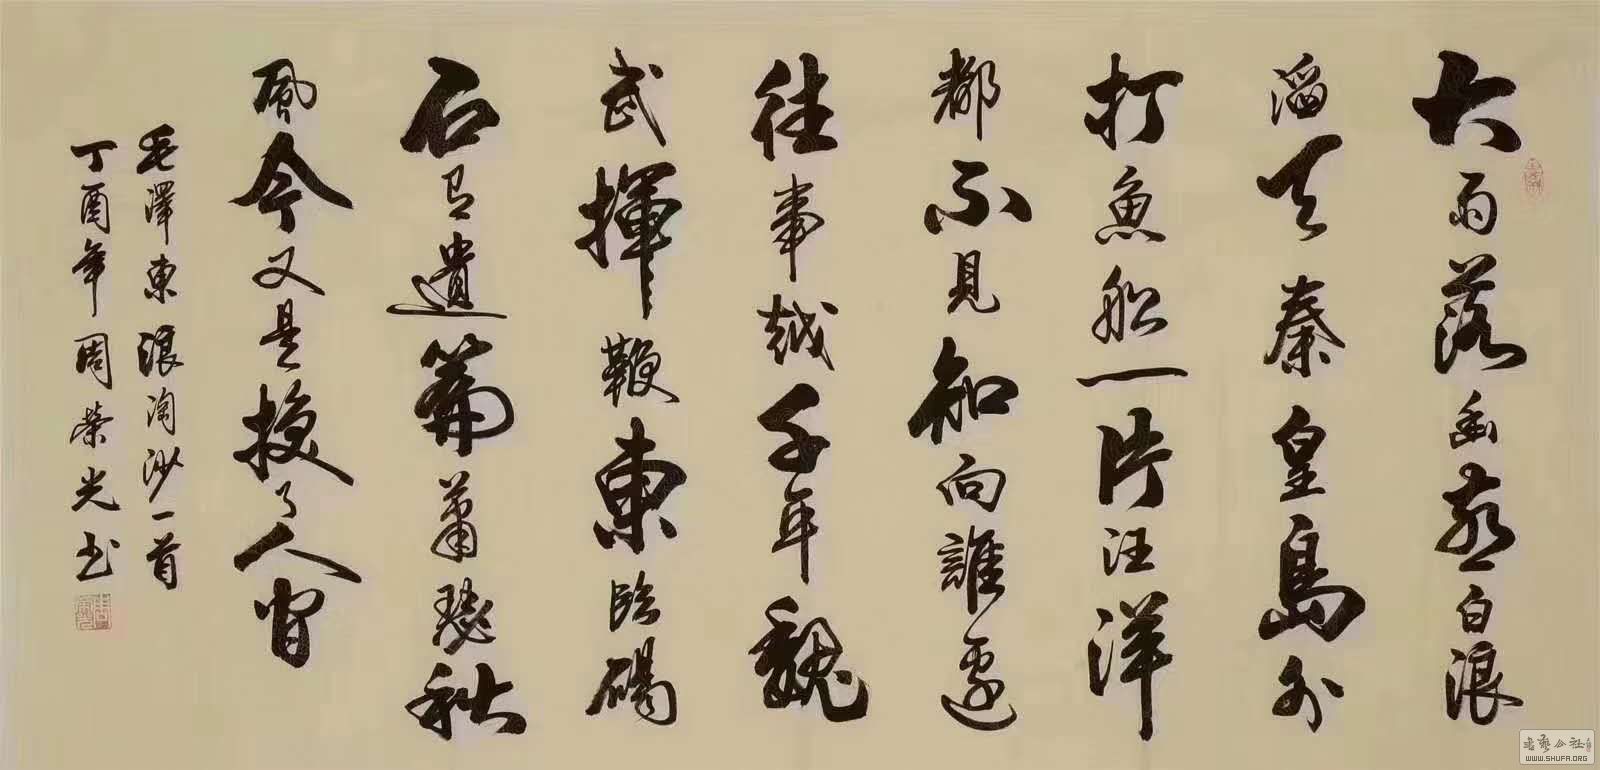 大雨落幽燕白浪
滔天秦皇島外
打魚船一片汪洋
都不見知向誰邊
往事越千年魏
武揮鞭東臨碣
石有遺篇蕭瑟秋
風今又是換了人間
毛澤東浪淘沙一首
丁酉年周榮光书
WWW.SHUFA.ORG